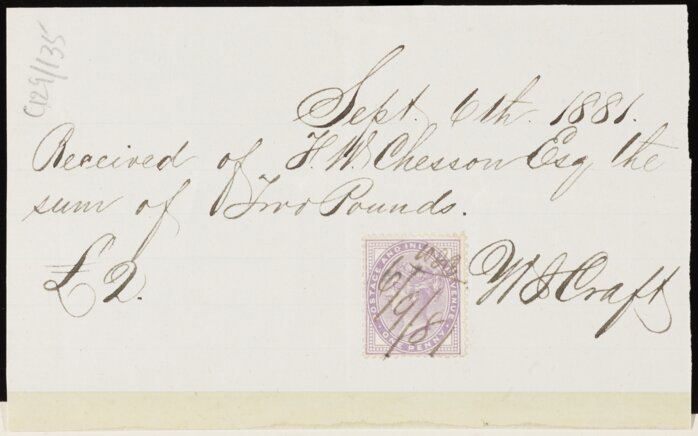 G129/135
Sept. 6th. 1881.
Received of F. W. Chesson Esq the
sum of Two Pounds.
£2.
POSTAGE AND INLAND REVENUE
ONE PENNY
6/9/81
W S Craft